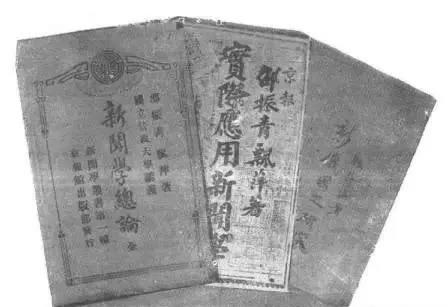 邵振青 飄萍著
國立法政大學講義
新聞學總論 全
新聞學叢書第一種
京報館出版部發行
京報
邵振青飄萍著
實際應用新聞學
國之研究